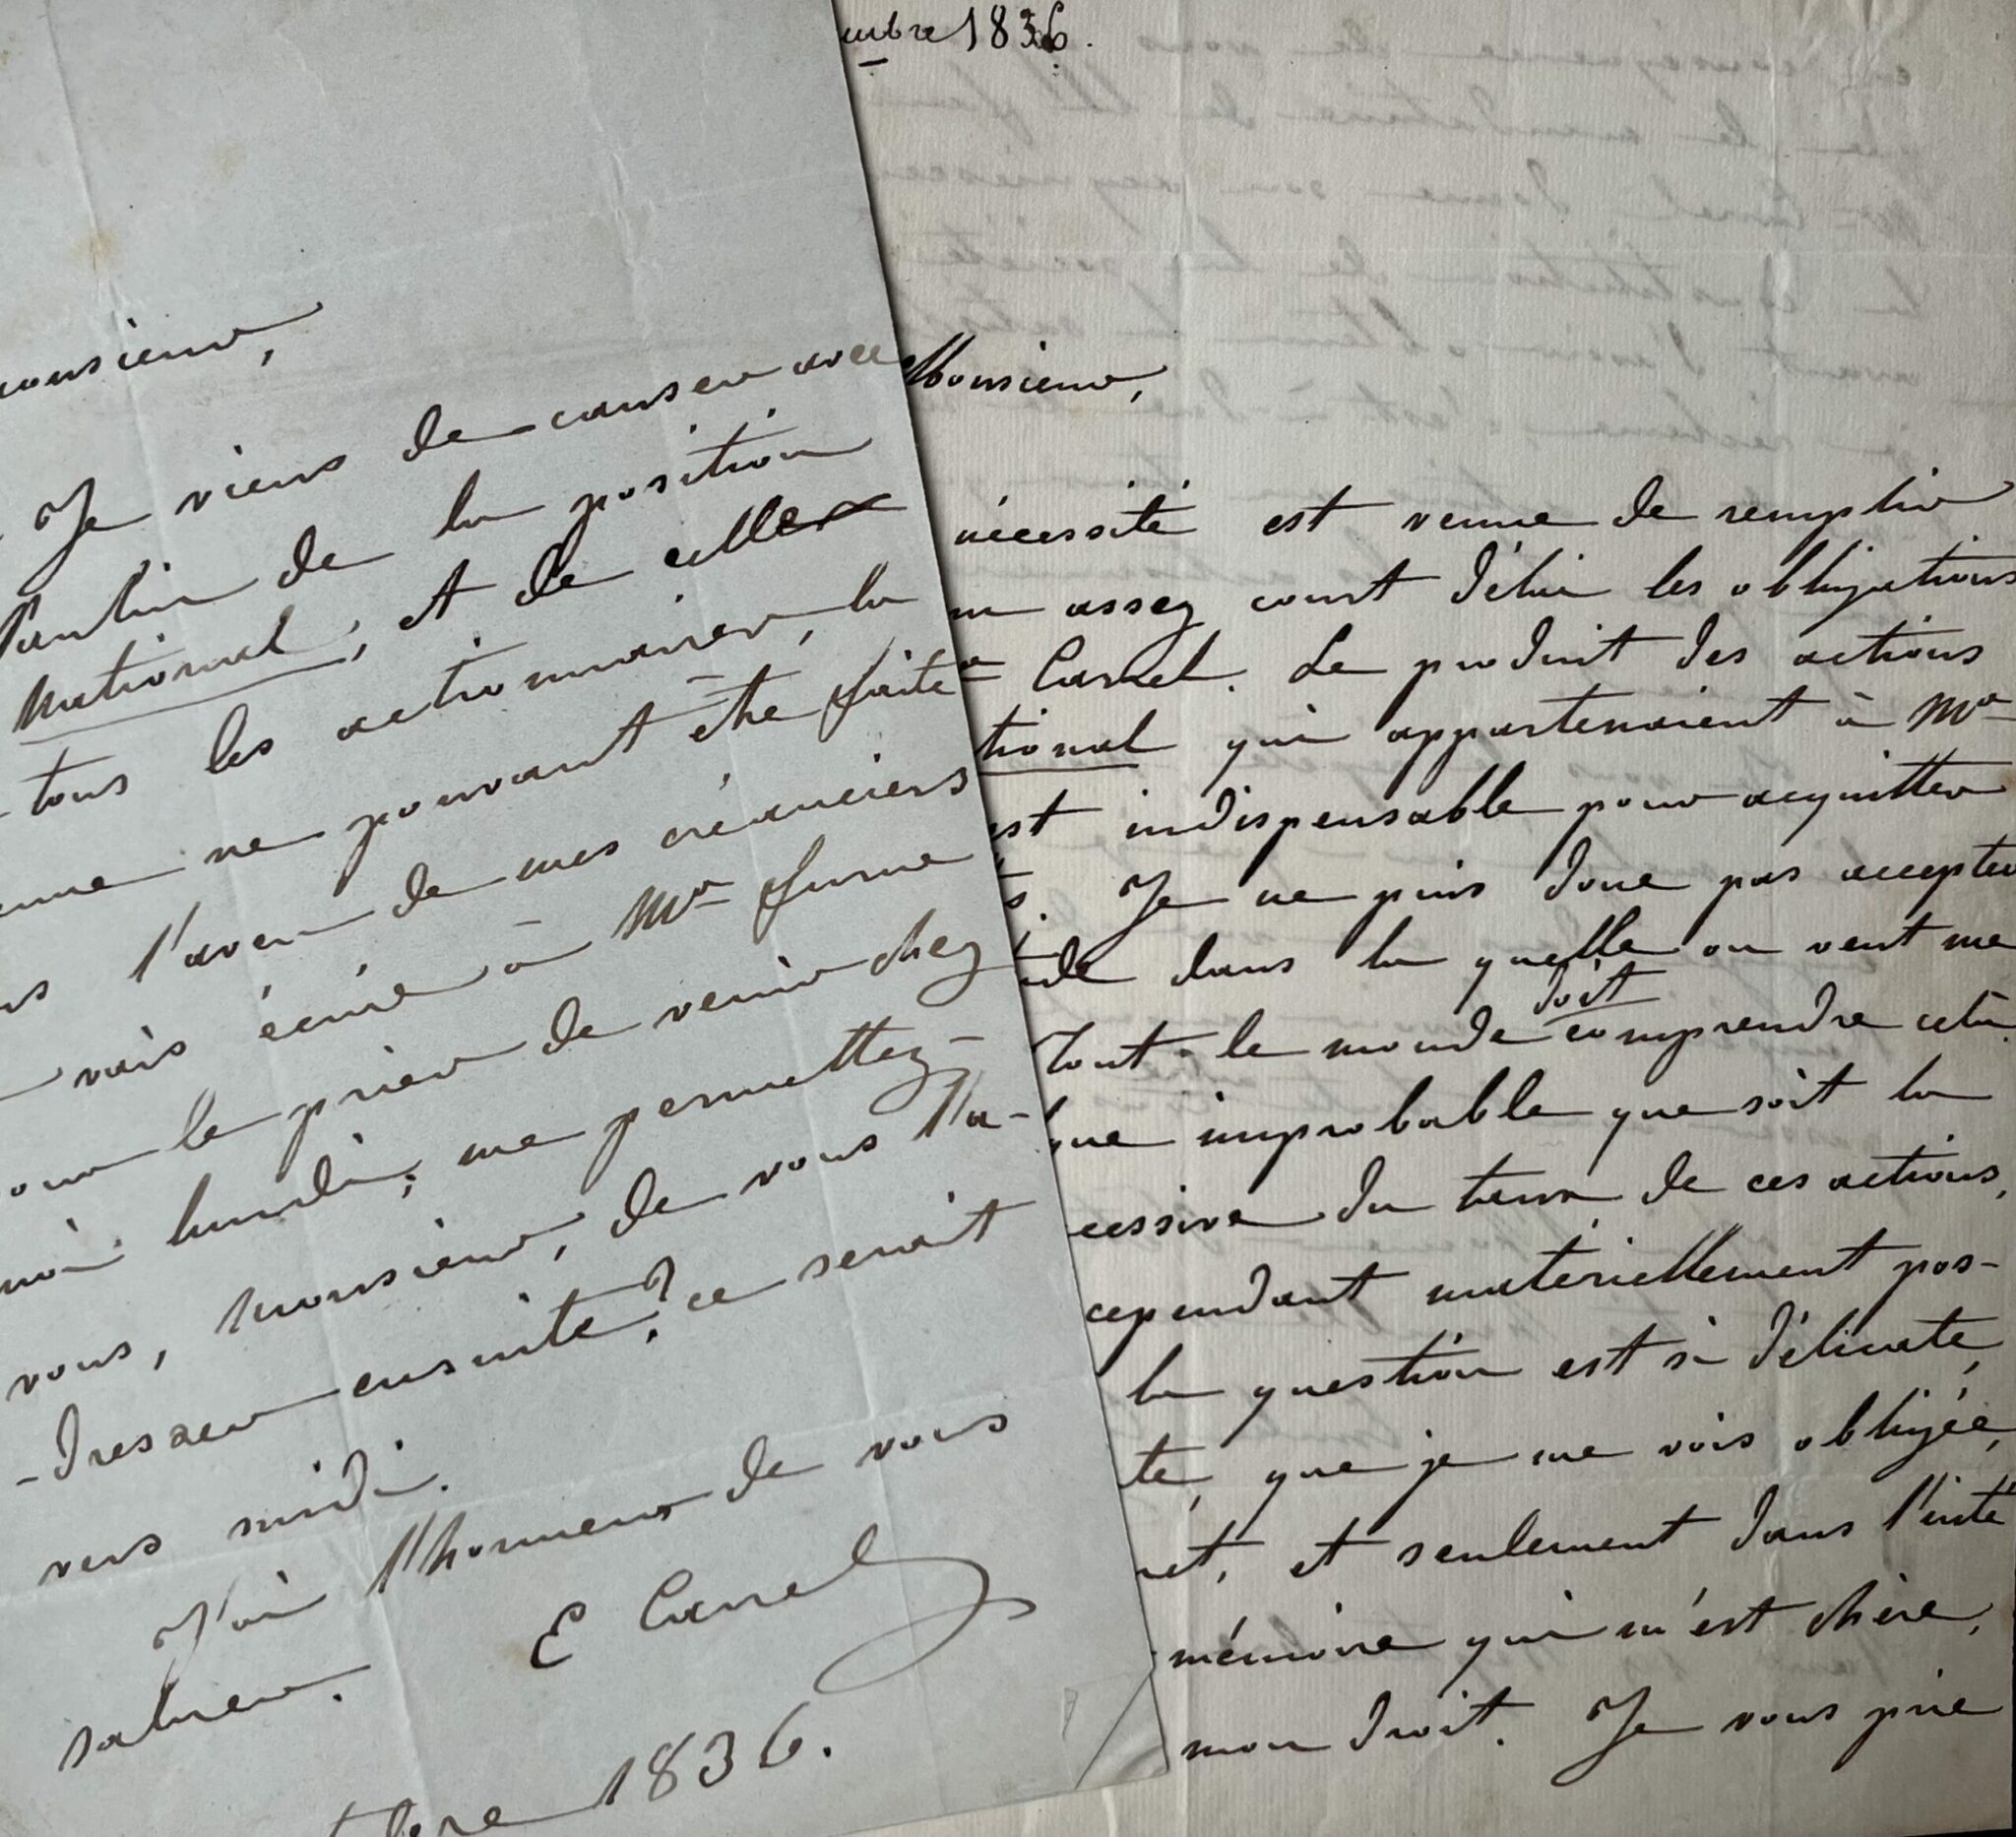 Monsieur,
Je viens de causer avec
Paulin de la position
National, et de celle
tous les actionnaires, la
ne pouvant être faite
l'aveu de mes créanciers
vais écrire à Mr furne
le prier de venir chez
moi lundi; me permettez-
vous, Monsieur, de vous l'a-
-dresser ensuite? ce serait
vers midi.
J'ai l'honneur de vous
saluer.
E Carrel
tobre 1836.
mbre 1836.
Monsieur,
nécessité est venue de remplir
un assez court délai les obligations
Mr Carrel. Le produit des actions
tional qui appartenaient à Mr
est indispensable pour acquitter
s. Je ne puis donc pas accepter
dans la quelle on veut me
Tout le monde doit comprendre cela.
que improbable que soit la
cessive du terme de ces actions,
cependant matériellement pos-
la question est si délicate,
te, que je me vois obligée,
ret, et seulement dans l'inté
mémoire qui m'est chère,
mon droit. Je vous prie